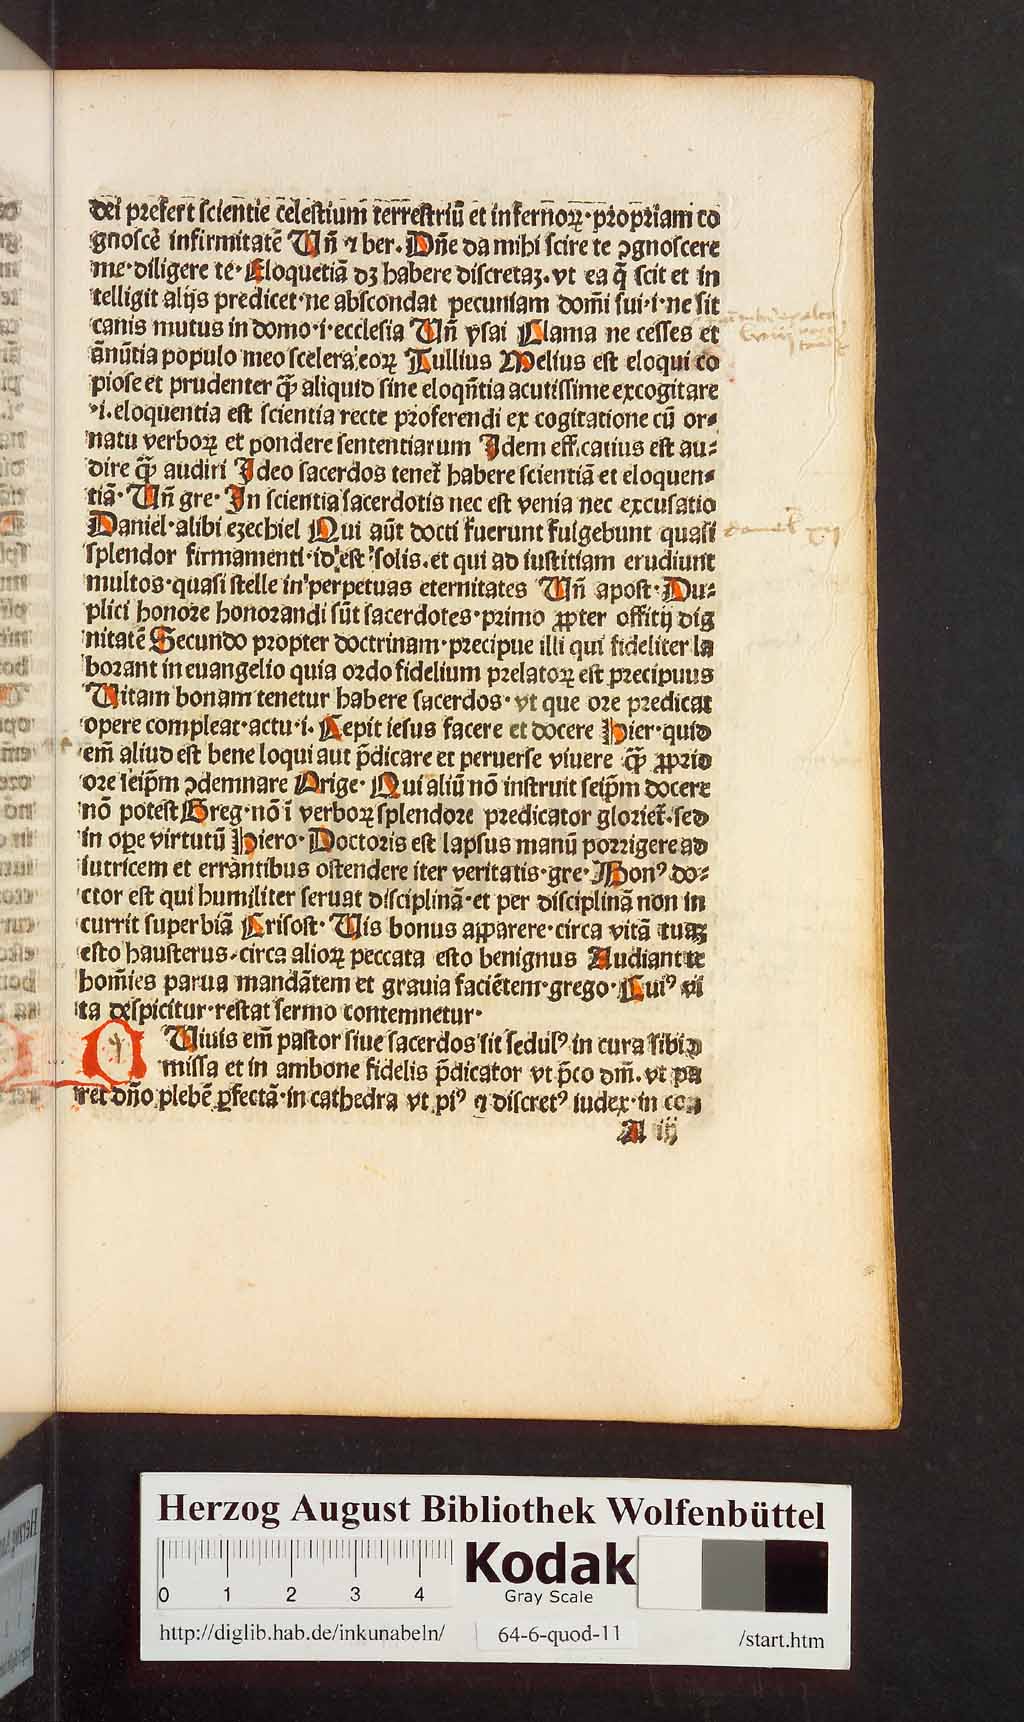 dei prefert scientie celestium̄ terrestriū et infernoꝝ·propriam co
gnoscē infirmitatē Un̄ ⁊ ber. Dn̄e da mihi scire te ꝯgnoscere
me·diligere te· Eloquētiā dꝫ habere discretaꝫ.vt ea q̄ scit et in
telligit alijs predicet·ne abscondat pecuniam dom̄i sui·i·ne sit
canis mutus in domo·i·ecclesia Un̄ ysai Clama ne cesses et
ānūtia populo meo scelera eoꝝ Tullius Melius est eloqui co
piose et prudenter q̄ꝫ aliquid sine eloqn̄tia acutissime excogitare
·i.eloquentia est scientia recte proferendi ex cogitatione cū or⸗
natu verboꝝ et pondere sententiarum Idem efficatius est au⸗
dire q̄ꝫ audiri Ideo sacerdos tenet̄ habere scientiā et eloquen⸗
tiā· Un̄ gre· In scientia sacerdotis nec est venia nec excusatio
Daniel·alibi ezechiel Qui aūt docti fuerunt fulgebunt quasi
splendor firmamenti·id est solis.et qui ad iustitiam erudiunt
multos·quasi stelle in perpetuas eternitates Un̄ apost· Du⸗
plici honore honorandi sūt sacerdotes·primo ꝓpter offitij dig
nitatē Secundo propter doctrinam·precipue illi qui fideliter la
borant in euangelio quia ordo fidelium prelatoꝝ est precipuus
Uitam bonam tenetur habere sacerdos·vt que ore predicat
opere compleat·actu·i. Cepit iesus facere et docere Hier·quid
em̄ aliud est bene loqui aut p̄dicare et peruerse viuere q̄ꝫ ꝓprio
ore seip̄m ꝯdemnare Orige· Qui aliū nō instruit seip̄m docere
nō potest Greg·nō ī verboꝝ splendore predicator gloriet̄·sed
in ope virtutū Hiero· Doctoris est lapsus manū porrigere ad
iutricem et errantibus ostendere iter veritatis·gre· Bonꝰ do⸗
ctor est qui humiliter seruat disciplinā·et per disciplinā non in
currit superbiā Crisost· Uis bonus apparere·circa vitā tuaꝫ
esto hausterus·circa alioꝝ peccata esto benignus Audiant te
hom̄ies parua mandātem et grauia faciētem·grego· Cuiꝰ vi
ta despicitur·restat sermo contemnetur·
Q Uiuis em̄ pastor siue sacerdos sit sedulꝰ in cura sibi ꝯ
missa et in ambone fidelis p̄dicator vt p̄co dm̄. vt pa
ret dn̄o plebē ꝑfectā·in cathedra vt piꝰ ⁊ discretꝰ iudex·in con
A iij
daniel XII
Herzog August Bibliothek Wolfenbüttel
0 1 2 3 4
Kodak
Gray Scale
http://diglib.hab.de/inkunabeln/ 64-6-quod-11 /start.htm